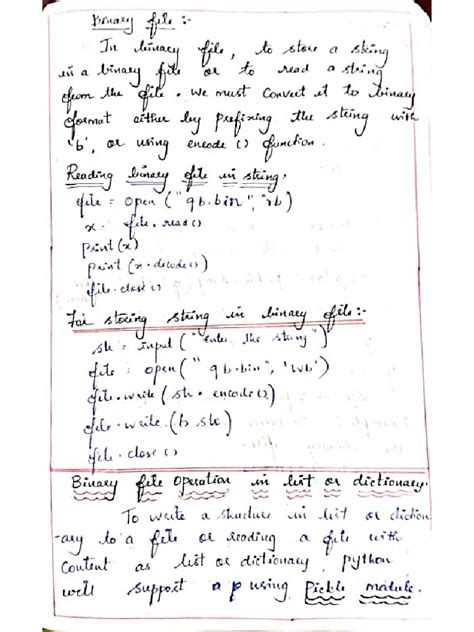 Binary file :-
In binary file, to store a string
in a binary file or to read a string
from the file. We must convert it to binary
format either by prefixing the string with
'b', or using encode () function.
Reading binary file in string:
file = open ("9b.bin", "rb")
x = file.read()
print (x)
print (x.decode())
file.close()
For storing string in binary file:-
str = input ("Enter the string")
file = open ("9b.bin", 'wb')
file.write (str.encode())
file.write (b str)
file.close ()
Binary file operation in list or dictionary.
To write a structure in list or diction
-ary to a file or reading a file with
content as list or dictionary, python
will support a p using Pickle module.